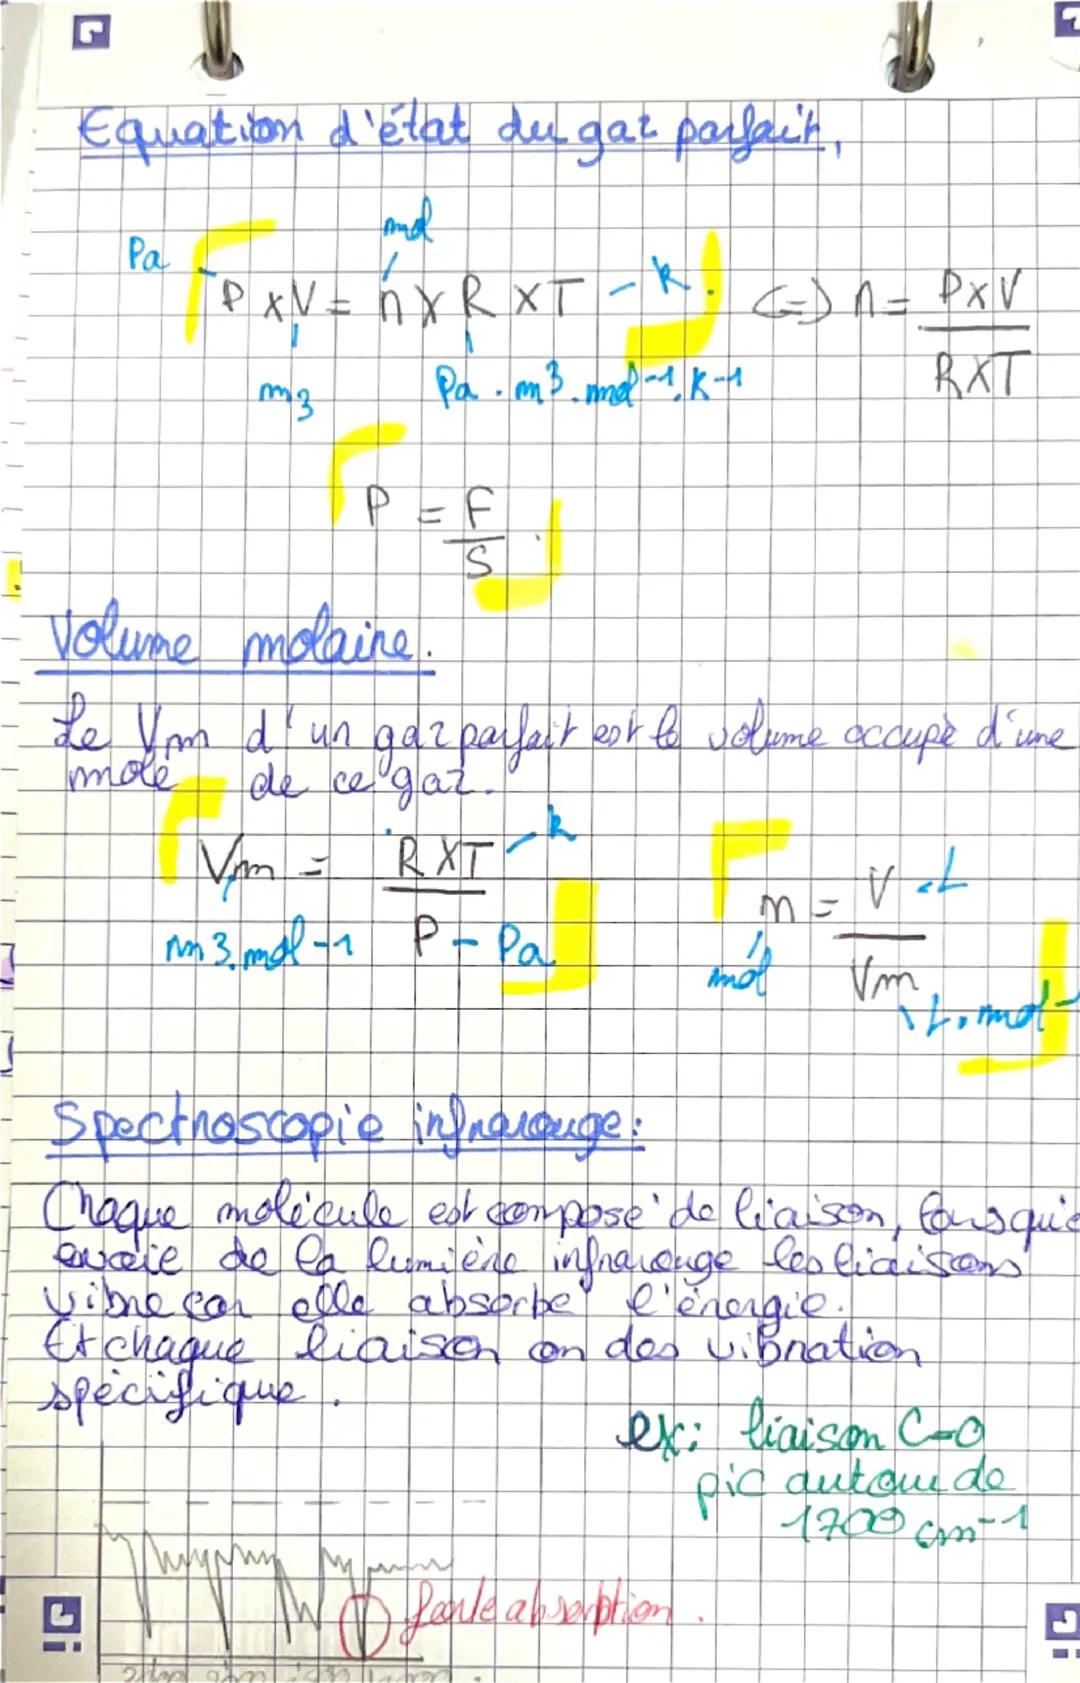 Equation d'état du gaz parfait,
mol
Pa
P x V = n x R x T - k.
<=> n = P x V
R x T
m3
Pa . m3. mol-1. K-1
P = F
S
Volume molaire.
Le Vm d'un gaz parfait est le volume occupé d'une
mole de ce gaz.
Vm = R x T - k
m3.mol-1
P - Pa
n = V - L
mol
Vm
L. mol-
Spectroscopie infrarouge:
Chaque molécule est composé de liaison, lorsqu'
envoie de la lumière infrarouge les liaisons
vibre car elle absorbe l'énergie.
Et chaque liaison on des vibration
spécifique.
ex: liaison C=O
pic autour de
1700 cm-1
forte absorption.